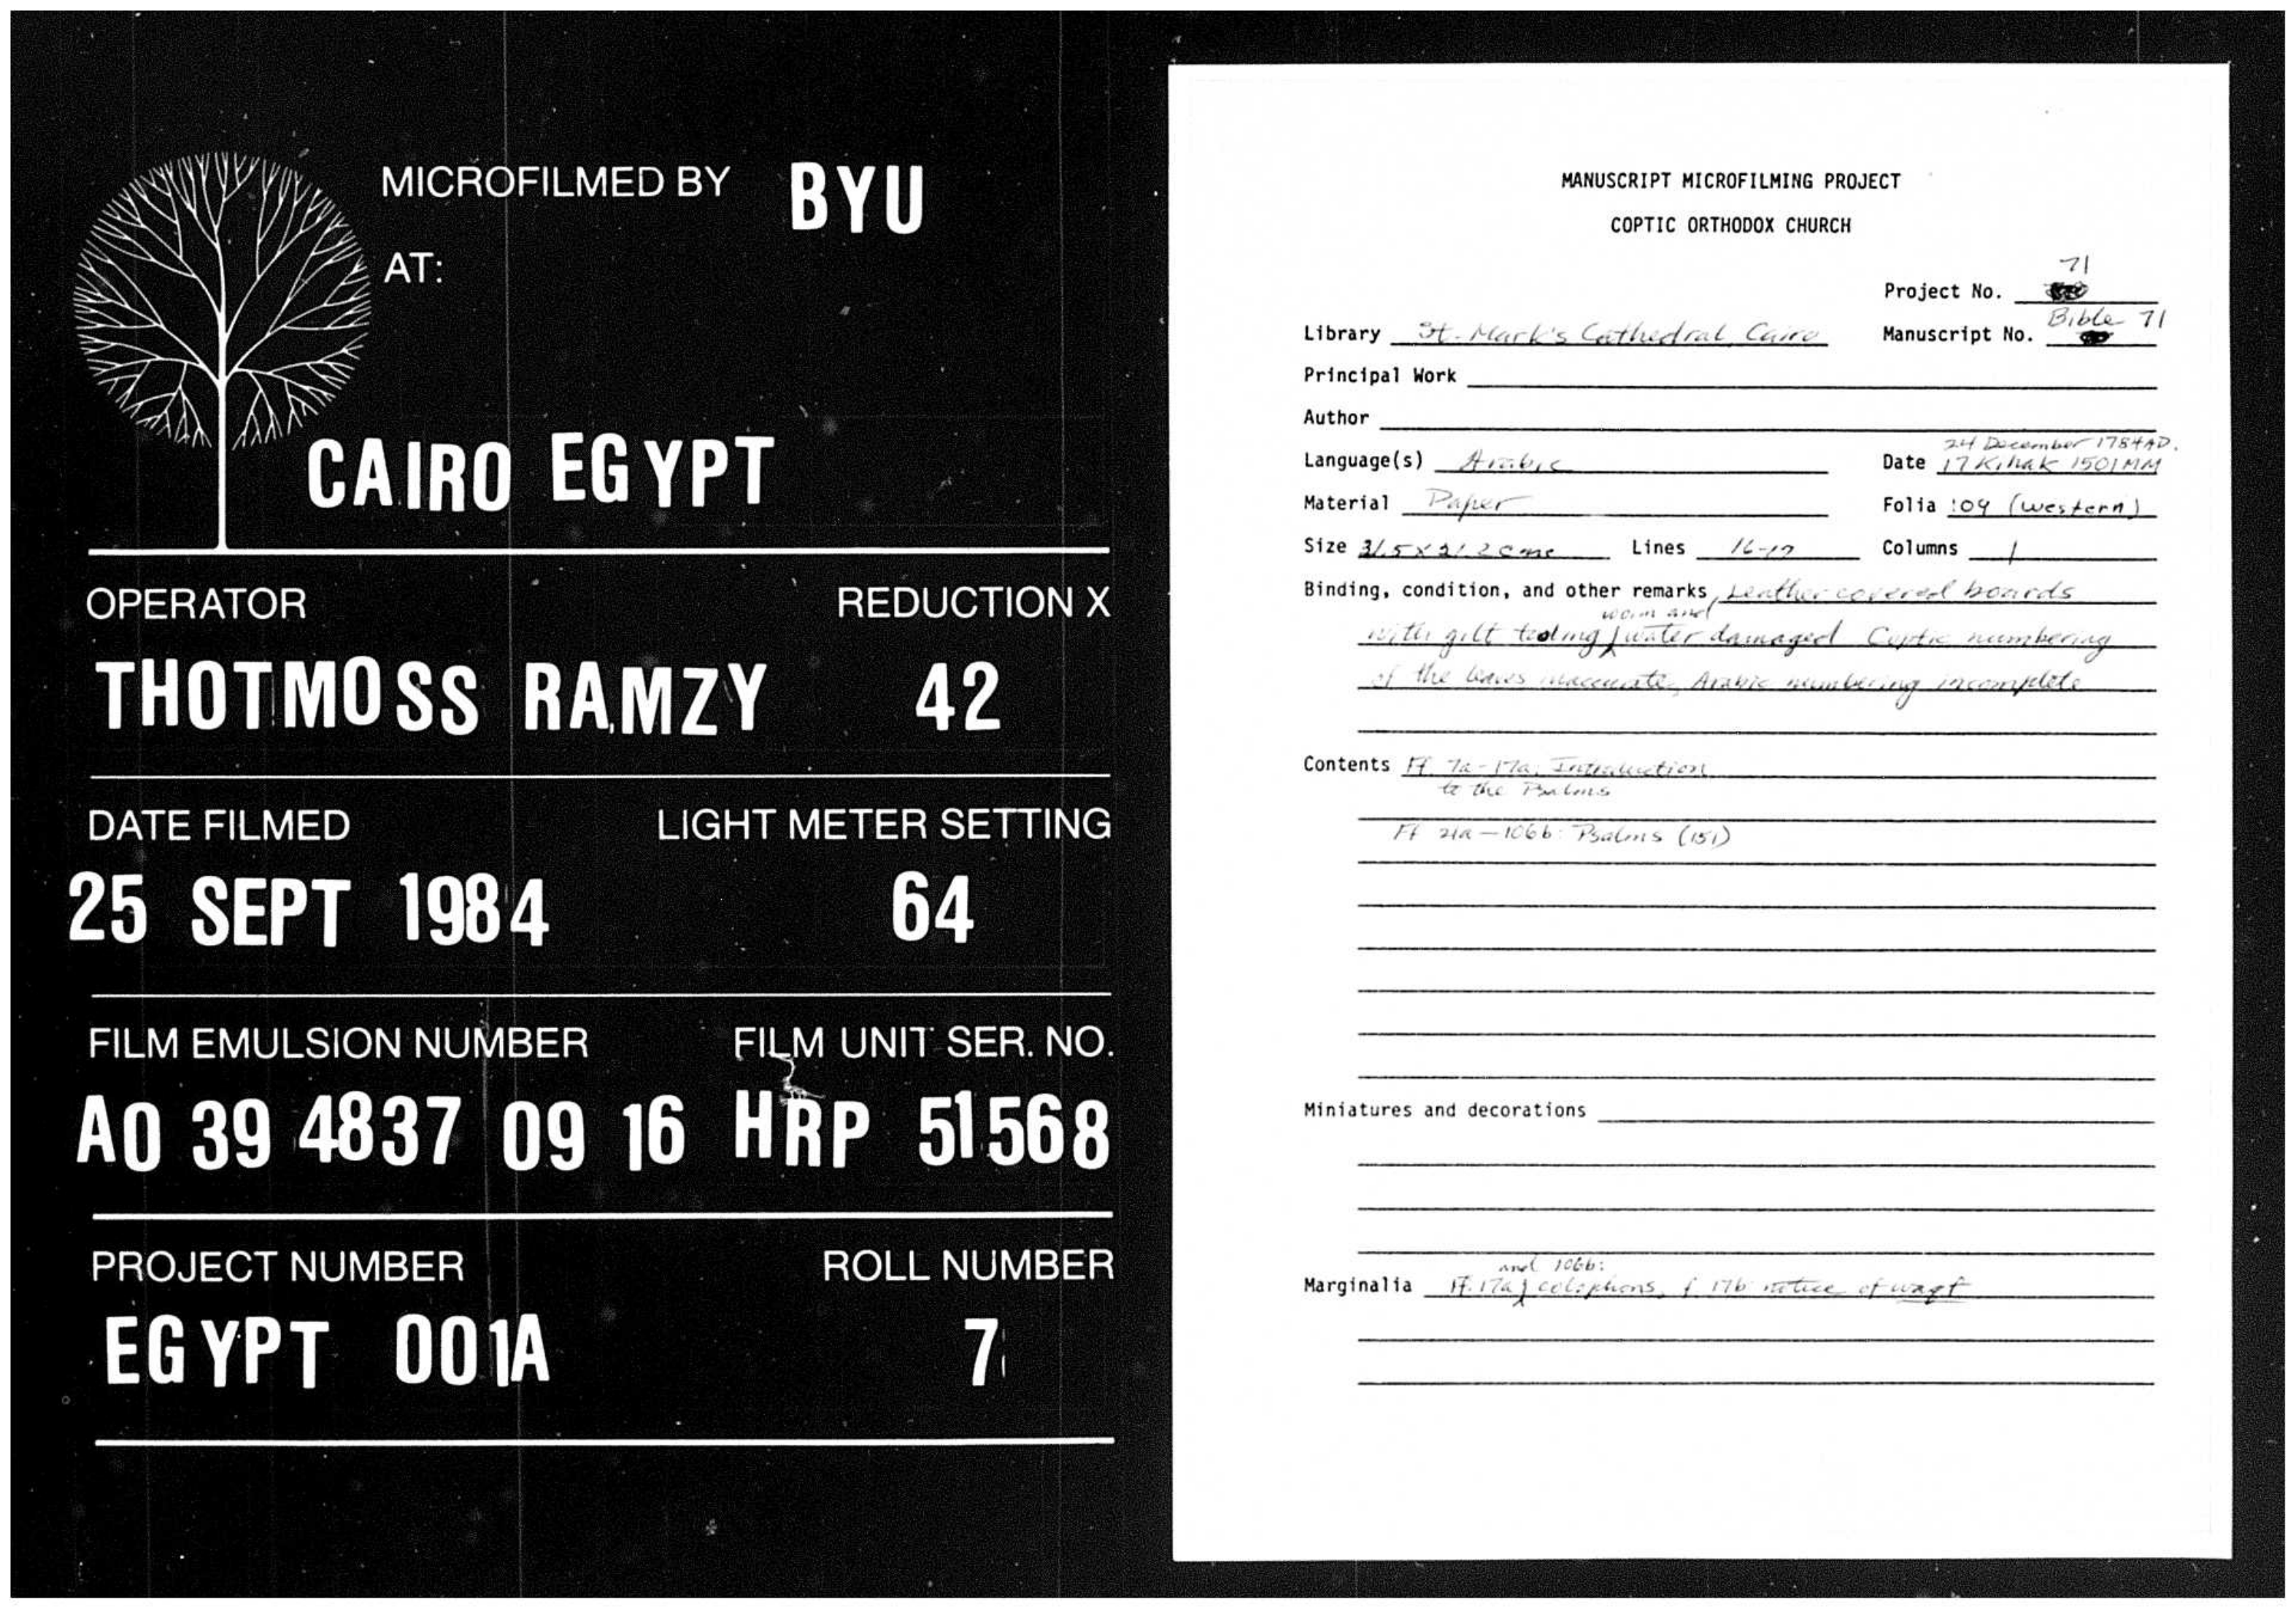 MICROFILMED BY BYU
AT:
CAIRO EGYPT
OPERATOR REDUCTION X
THOTMOSS RAMZY 42
DATE FILMED LIGHT METER SETTING
25 SEPT 1984 64
FILM EMULSION NUMBER FILM UNIT SER. NO.
AO 39 4837 09 16 HRP 51568
PROJECT NUMBER ROLL NUMBER
EGYPT 001A 7
MANUSCRIPT MICROFILMING PROJECT
COPTIC ORTHODOX CHURCH
71
Project No.
Library St. Mark's Cathedral, Cairo Manuscript No. Bible 71
Principal Work
Author
24 December 1784 AD.
Language(s) Arabic Date 17 Kihak 1501 MM
Material Paper Folia 109 (western)
Size 31.5 x 21.2 cms Lines 16-17 Columns 1
Binding, condition, and other remarks Leather covered boards
worm and
with gilt tooling, water damaged Coptic numbering
of the leaves inaccurate, Arabic numbering incomplete
Contents Ff. 7a-17a: Introduction
to the Psalms
Ff 21a-106b: Psalms (151)
Miniatures and decorations
and 106b:
Marginalia Ff. 17a colophons, f 17b notice of waqf